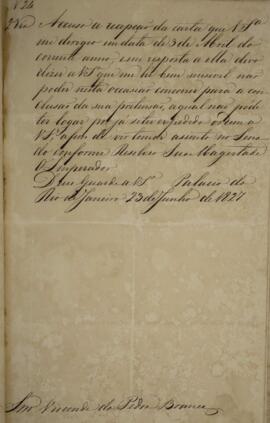 N 24
Accuso a recepção da carta que V Sª
me derigio em data de 3 de Abril do
corrente anno, e em resposta a ella devo
dizer a V Sª que me he bem sensivel não
poder nesta occasião concorrer para a con
clusão da sua pertensão, a qual não pode
ter logar por já se ter expedido ordem a
V Sª a fim de vir tomar assento no Sena
do conforme Resolveo Sua Magestade
O Imperador.
Deus Guarde a V Sª Palacio do
Rio de Janeiro 23 de Junho de 1827
Snr Visconde da Pedra Branca